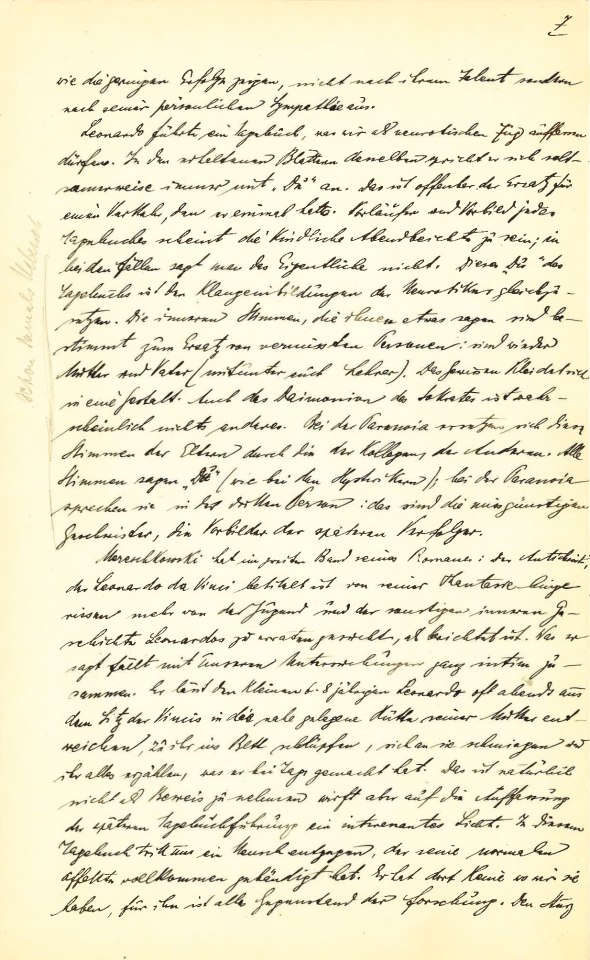 7
wie diejenigen Erfolge zeigen, nicht nach ihrem Talent sondern
nach seiner persönlichen Sympathie aus.
Leonardo führte ein Tagebuch, was wir als neurotischen Zug auffassen
dürfen. In den erhaltenen Blättern desselben spricht er sich selt-
samerweise immer mit „Du" an. Das ist offenbar der Ersatz für
einen Verkehr, den er einmal hatte. Vorläufer und Vorbild jedes
Tagebuches scheint die kindliche Abendbeichte zu sein; in
beiden Fällen sagt man das Eigentliche nicht. Dieses „Du" des
Tagebuchs ist den Klangeinbildungen des Neurotikers gleichzu-
setzen. Die inneren Stimmen, die ihnen etwas sagen sind be-
stimmt zum Ersatz von vermissten Personen: sind wieder
Mutter und Vater (mitunter auch Lehrer). Das Gewissen kleidet sich
in eine Gestalt. Auch das Daimonion des Sokrates ist wahr-
scheinlich nichts anderes. Bei der Paranoia ersetzen sich diese
Stimmen der Eltern durch die der Kollegen, der Anderen. Alle
Stimmen sagen „Du" (wie bei den Hysterikern); bei der Paranoia
sprechen sie in der dritten Person: das sind die missgünstigen
Geschwister, die Vorbilder der späteren Verfolger.
Mereschkowski hat im zweiten Band seines Romanes: der Antichrist,
der Leonardo da Vinci betitelt ist von seiner Phantasie hinge-
rissen mehr von der Jugend und der sonstigen inneren Ge-
schichte Leonardos zu erraten gesucht, als berichtet ist. Was er
sagt fällt mit unseren Untersuchungen ganz intim zu-
sammen. Er lässt den kleinen 6-8 jährigen Leonardo oft abends aus
dem Sitz der Vincis in die nahe gelegene Hütte seiner Mutter ent-
weichen, zu ihr ins Bett schlüpfen, sich an sie schmiegen und
ihr alles erzählen, was er bei Tage gemacht hat. Das ist natürlich
nicht als Beweis zu nehmen wirft aber auf die Auffassung
der späteren Tagebuchführung ein interessantes Licht. In diesem
Tagebuch tritt uns ein Mensch entgegen, der seine normalen
Affekte vollkommen gebändigt hat. Er hat dort keine wo wir sie
haben, für ihn ist alles Gegenstand der Forschung. Den Sturz